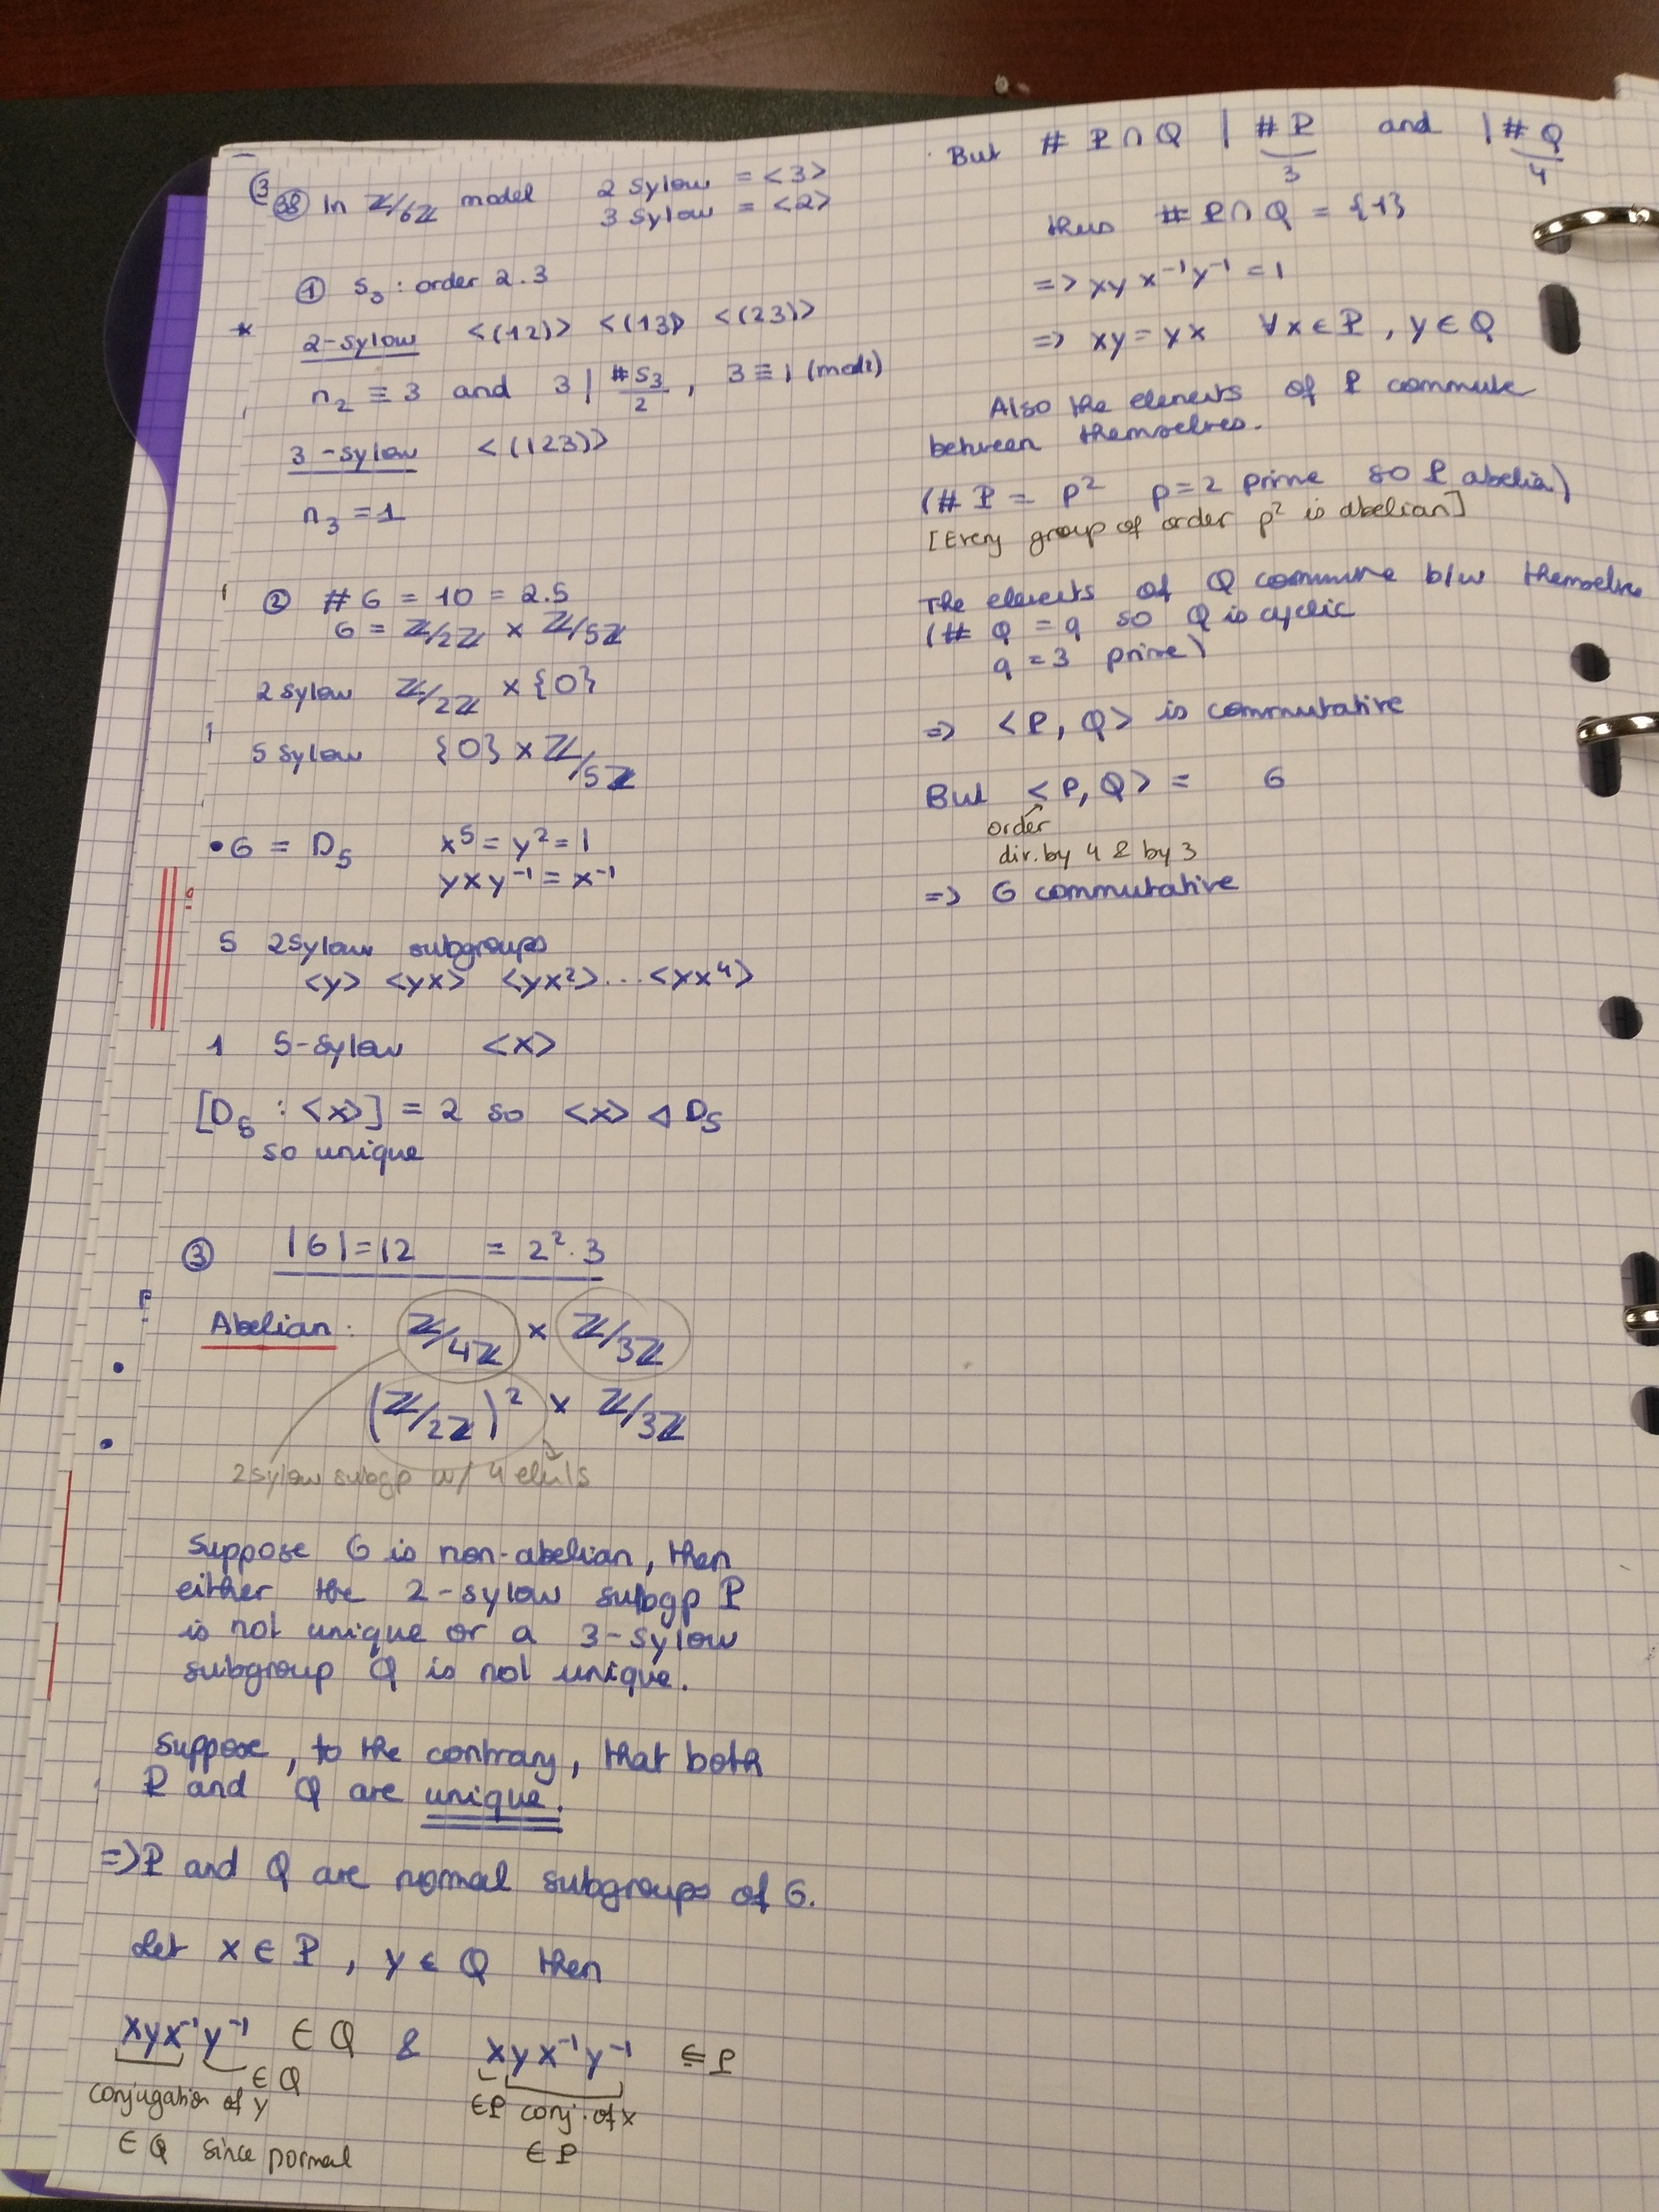 ③
38 In ℤ/6ℤ model 2 Sylow = <3>
3 Sylow = <2>
① S₃ : order 2.3
* 2-sylow <(12)> <(13)> <(23)>
n₂ ≡ 3 and 3 | #S₃/2 , 3 ≡ 1 (mod 2)
3-sylow <(123)>
n₃ = 1
② # G = 10 = 2.5
G = ℤ/2ℤ × ℤ/5ℤ
2 Sylow ℤ/2ℤ × {0}
5 Sylow {0} × ℤ/5ℤ
• G = D₅ x⁵ = y² = 1
yxy⁻¹ = x⁻¹
5 2Sylow subgroups
<y> <yx> <yx²> ... <yx⁴>
1 5-Sylow <x>
[D₅ : <x>] = 2 so <x> ⊲ D₅
so unique
③ |G| = 12 = 2².3
Abelian : ℤ/4ℤ × ℤ/3ℤ
(ℤ/2ℤ)² × ℤ/3ℤ
2sylow subgp w/ 4 elmts
Suppose G is non-abelian, then
either the 2-sylow subgp P
is not unique or a 3-sylow
subgroup Q is not unique.
Suppose, to the contrary, that both
P and Q are unique.
=> P and Q are normal subgroups of G.
Let x ∈ P , y ∈ Q then
xyx⁻¹y⁻¹ ∈ Q & xyx⁻¹y⁻¹ ∈ P
∈ Q ∈P conj. of x
conjugation of y ∈ P
∈ Q since normal
But # P ∩ Q | #P and | #Q
3 4
thus # P ∩ Q = {1}
=> xyx⁻¹y⁻¹ = 1
=> xy = yx ∀x ∈ P , y ∈ Q
Also the elements of P commute
between themselves.
(# P = p² p=2 prime so P abelian)
[Every group of order p² is abelian]
The elements of Q commute b/w themselves
(# Q = q so Q is cyclic
q = 3 prime)
=> <P, Q> is commutative
But <P, Q> = G
order
div. by 4 & by 3
=> G commutative